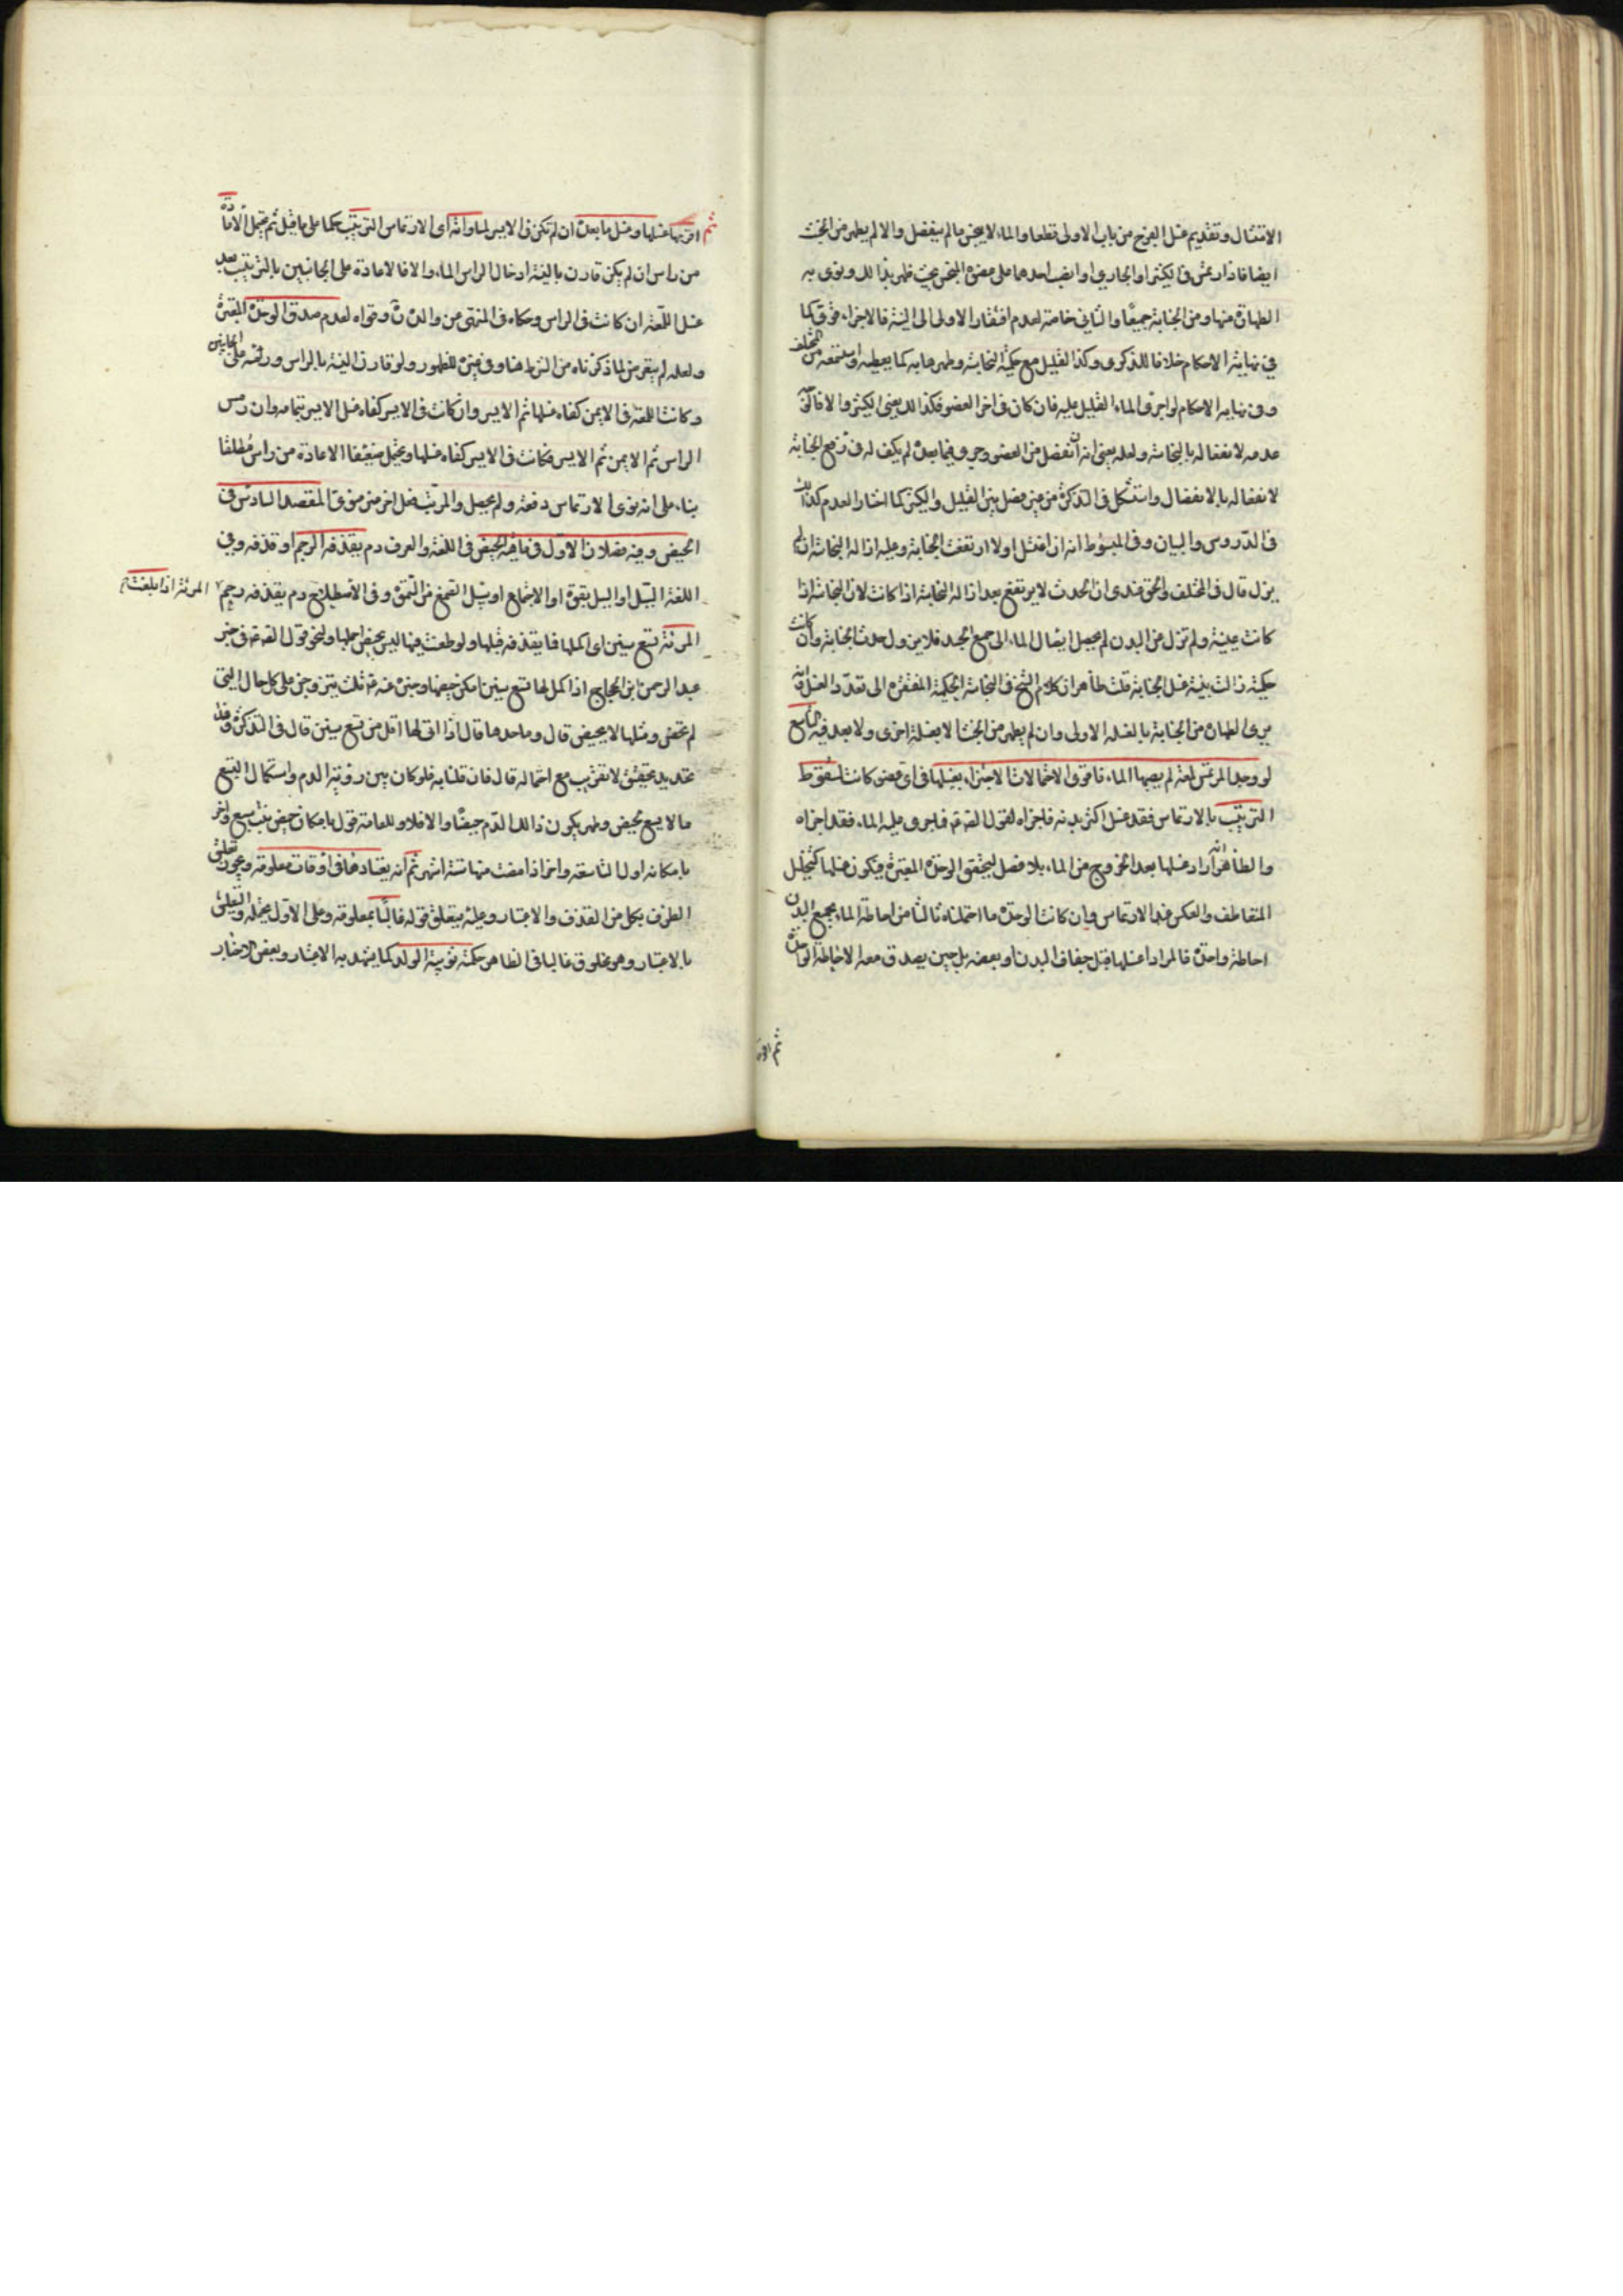 الامتثال وتقديم غسل الفرج من باب الاولى قطعا والماء لا ينجس ما لم ينفصل والا لم يطهر من الخبث
ايضا فاذا ارتمس في الكثير او الجاري او انصب احدهما على عضوه النجس بحيث طهر بذلك ونوى به
الطهارة منها ومن الجنابة جميعا والثاني خاصة لعدم افتقار الاولى الى النية فالاجزاء قوي كما
في نهاية الاحكام خلافا للذكرى وكذا القليل مع حكمية النجاسة وطهرها به كما يعطيه
وفي نهاية الاحكام لو اجرى الماء القليل عليه فان كان في اخر العضو فكذلك يعني الكثير والا فالوجه
عدمه لانفعاله بالنجاسة ولعله يعني انه ان انفصل من العضو وجرى فيما بعده لم يكف له في رفع الجنابة
لانفعاله بالانفصال واستشكل في التذكرة من غير فصل بين القليل والكثير كما اختار العدم كذلك
في الدروس والبيان وفي المبسوط انه ان اغتسل اولا ارتفعت الجنابة وعليه ازالة النجاسة ان لم
يزل قال في المختلف والحق عندي ان الحدث لا يرتفع بعد ازالة النجاسة اذا كانت لان النجاسة اذا
كانت عينية ولم تزل من البدن لم يحصل ايصال الماء الى جميع الجسد فلا يزول حدث الجنابة وان كانت
حكمية زالت بنية غسل الجنابة قلت ظاهر ان كلام الشيخ في النجاسة الحكمية المفتقرة الى تعدد الغسل وانه
يرى الطهارة من الجنابة بالغسله الاولى وان لم يطهر من الخبث الا بغسلة اخرى ولا بعد فيه التاسع
لو وجد المرتمس لمعة لم يصبها الماء فاقوى الاحتمالات الاجتزاء بغسلها في اي عضو كانت لسقوط
الترتيب بالارتماس فقد غسل اكثر بدنه فاجزاه لقول الصادق ع فاجرى عليه الماء فقد اجزاه
والظاهر انه اراد غسلها بعد الخروج من الماء بلا فصل ليتحقق الوحدة المعتبرة فيكون غسلها كتخلل
المتقاطف والعكن عند الارتماس وان كانت الوحدة ما احتملناه ثالثا من احاطة الماء بجميع البدن
احاطة واحدة فالمراد غسلها قبل جفاف البدن او بعضه بل حين يصدق معه الاحاطة الواحدة
ثم
ثم اقربها غسلها وغسل ما بعدها ان لم تكن في الايسر لمساواته اي الارتماس الترتيب حكما على ما قيل ثم يحتمل الاعادة
من راس ان لم يكن قارن بالنية ادخال الراس الماء والا فالاعادة على الجانبين بالترتيب بعد
غسل اللمعة ان كانت في الراس وحكاه في المنتهى عن والده وقواه لعدم صدق الوحدة المعتبرة
ولعله لم يتعرض لما ذكرناه من الشرط هنا وفي غيره للظهور ولو قارن النية بالراس
وكانت اللمعة في الايمن كفاه غسلها ثم الايسر وان كانت في الايسر كفاه غسل الايسر بتمامه وان رمس
الراس ثم الايمن ثم الايسر فكانت في الايسر كفاه غسلها ويحتمل ضعيفا الاعادة من راس مطلقا
بناء على انه نوى الارتماس دفعة ولم يحصل والمرتب فصل اخر غير منوي المقصد السادس في
الحيض وفيه فصلان الاول في ماهيته الحيض في اللغة والعرف دم يقذفه الرحم او قذفه وفي
اللغة السيل او السيل بقوة او الاجتماع وفي الاصطلاح دم يقذفه رحم المرئة اذا بلغت
المرئة تسع سنين اي اكملها فما يقذفه قبلها ولو طعنت فيها ليس بحيض اجماعا ولنحو قول الصادق ع في خبر
عبد الرحمن ابن الحجاج اذا كمل لها تسع سنين امكن حيضها وخبره عنه ع ثلث يتزوجن على كل حال التي
لم تحض ومثلها لا يحيض قال وما حدها قال اذا اتى لها اقل من تسع سنين قال في التذكرة وهذا
تحديد تحقيق لا تقريب مع احتماله قال فان قلنا به فلو كان بين رؤية الدم واستكمال التسع
ما لا يسع لحيض وطهر يكون ذلك الدم حيضا والا فلا وللعامة قول بامكان حيض بنت سبع واخر
بامكانه اول التاسعة واخر اذا مضت منها ستة اشهر ثم انه يعتاد في اوقات معلومة ويجوز تعلق
الظرف بكل من القذف والاعتياد وعليه يتعلق قوله غالبا بمعلومة وعلى الاول يحتمله والتعلق
بالاعتياد وهو مخلوق غالبا في الظاهر لحكمة تربية الولد كما يشهد به الاعتبار وبعض الاخبار